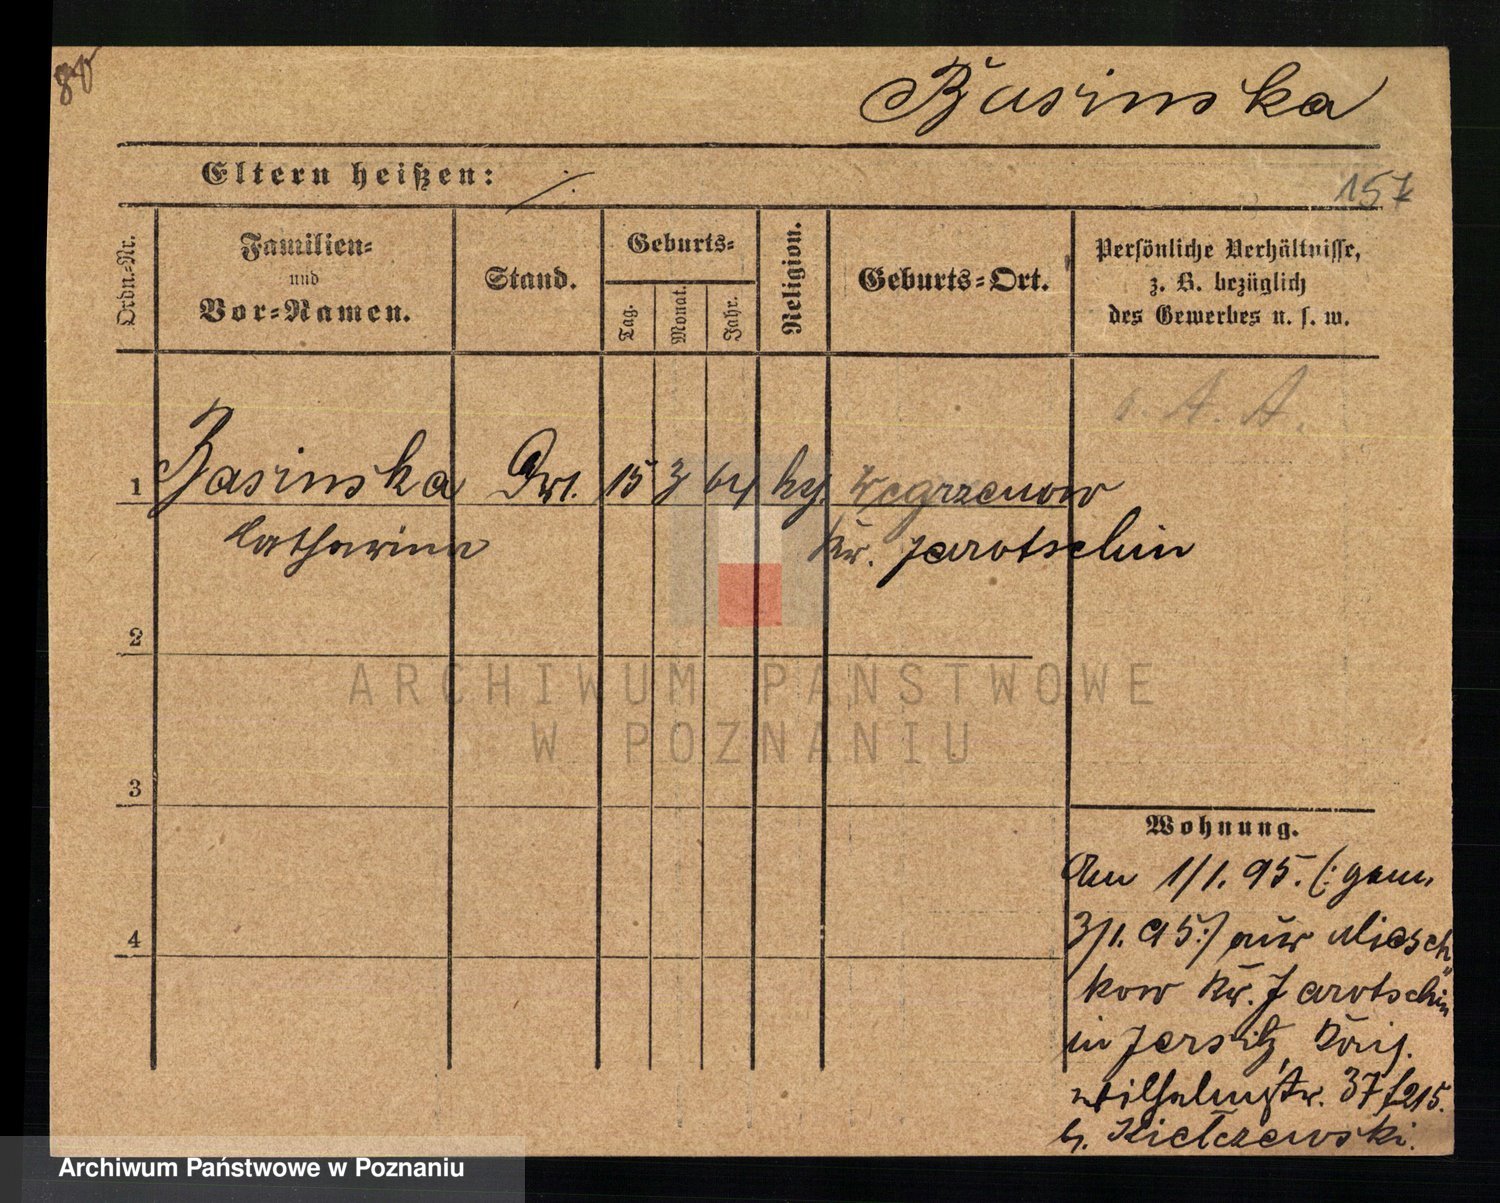 80
Basinska
Eltern heißen: ./.
157
Ordn.-Nr.
Familien-
und
Vor-Namen.
Stand.
Geburts-
Tag.
Monat.
Jahr.
Religion.
Geburts-Ort.
Persönliche Verhältnisse,
z. B. bezüglich
des Gewerbes u. s. w.
A. A.
1 Basinska 15 3 64 Wegrzenow
Catharina Kr. Jarotschin
2
3
4
ARCHIWUM PAŃSTWOWE
W POZNANIU
Wohnung.
Am 1/1. 95. (: gem.
3/1. 95 :) aus Miesch
kow Kr. Jarotschin
in Jersitz,
Wilhelmstr. 37 f 215.
b. Kielczewski.
Archiwum Państwowe w Poznaniu